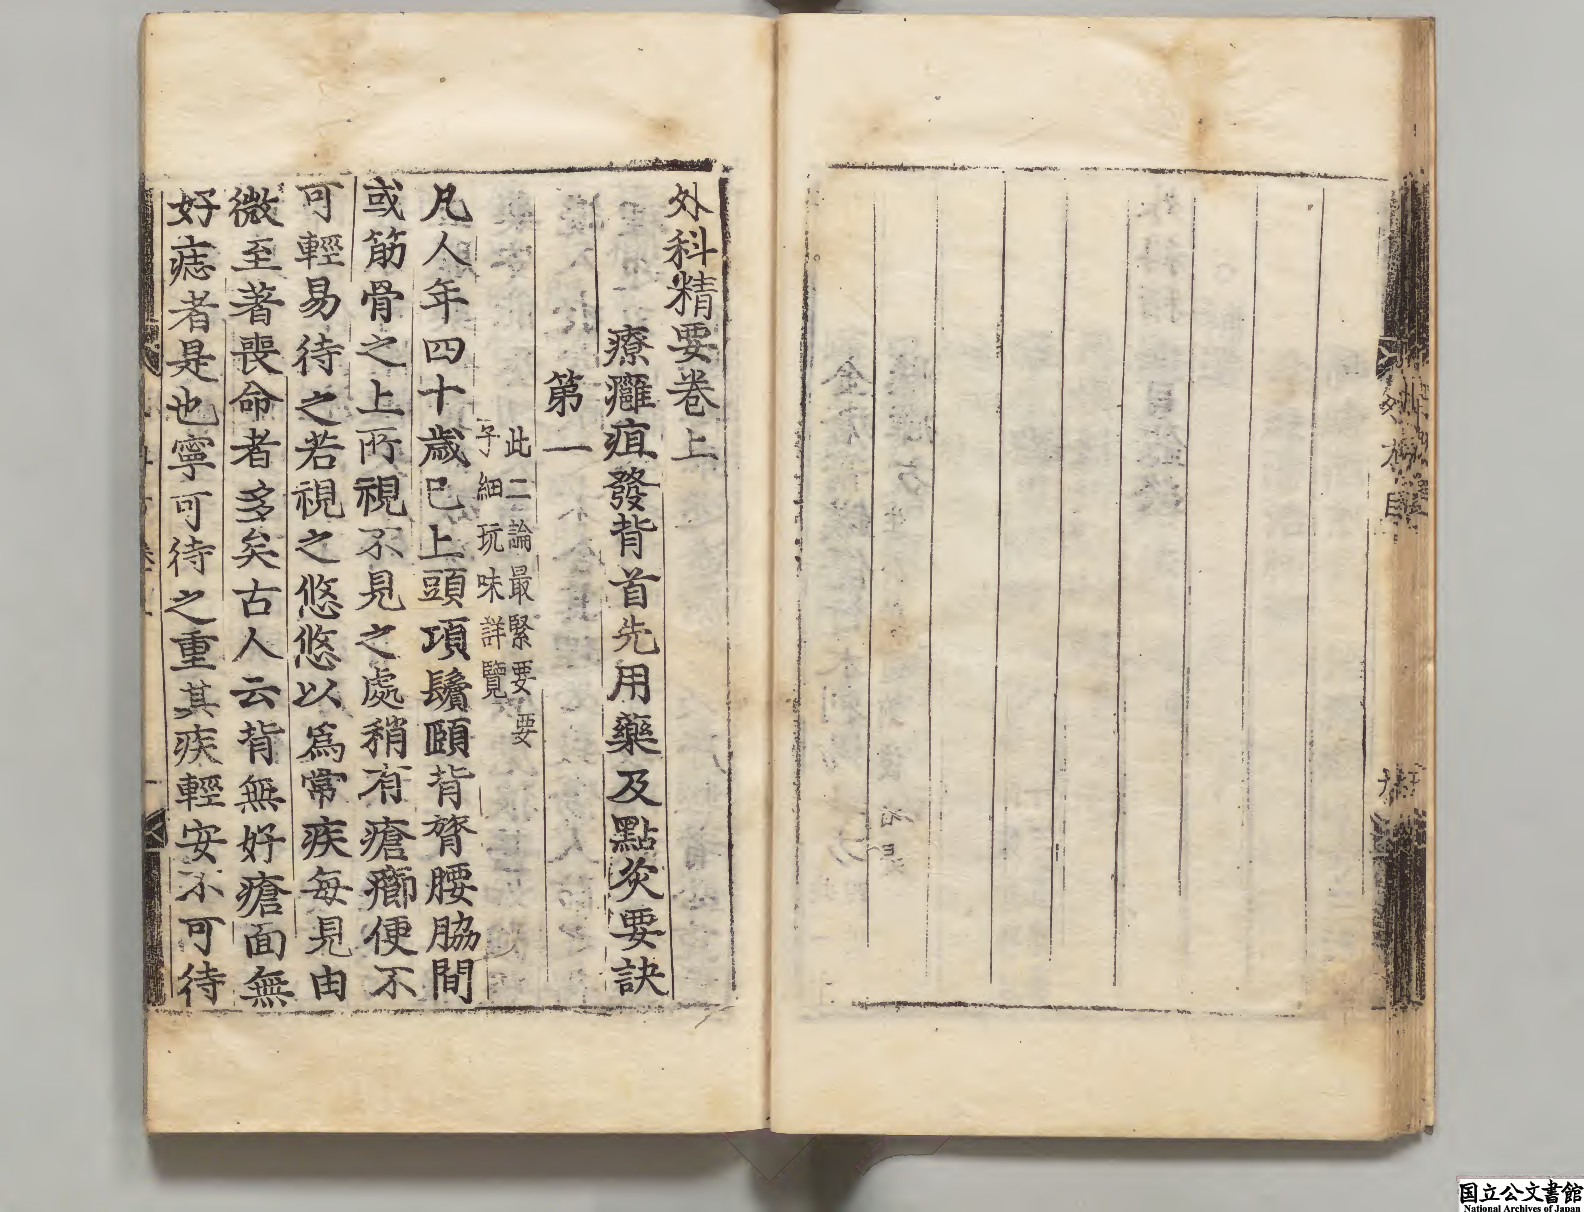 外科精要卷上
療癰疽發背首先用藥及點灸要訣
第一
此二論最緊要要
子細玩味詳覽
凡人年四十歲已上頭項鬢頤背膂腰脇間
或筋骨之上所視不見之處稍有瘡癤便不
可輕易待之若視之悠悠以爲常疾每見由
微至著喪命者多矣古人云背無好瘡面無
好痣者是也寧可待之重其疾輕安不可待
国立公文書館
National Archives of Japan